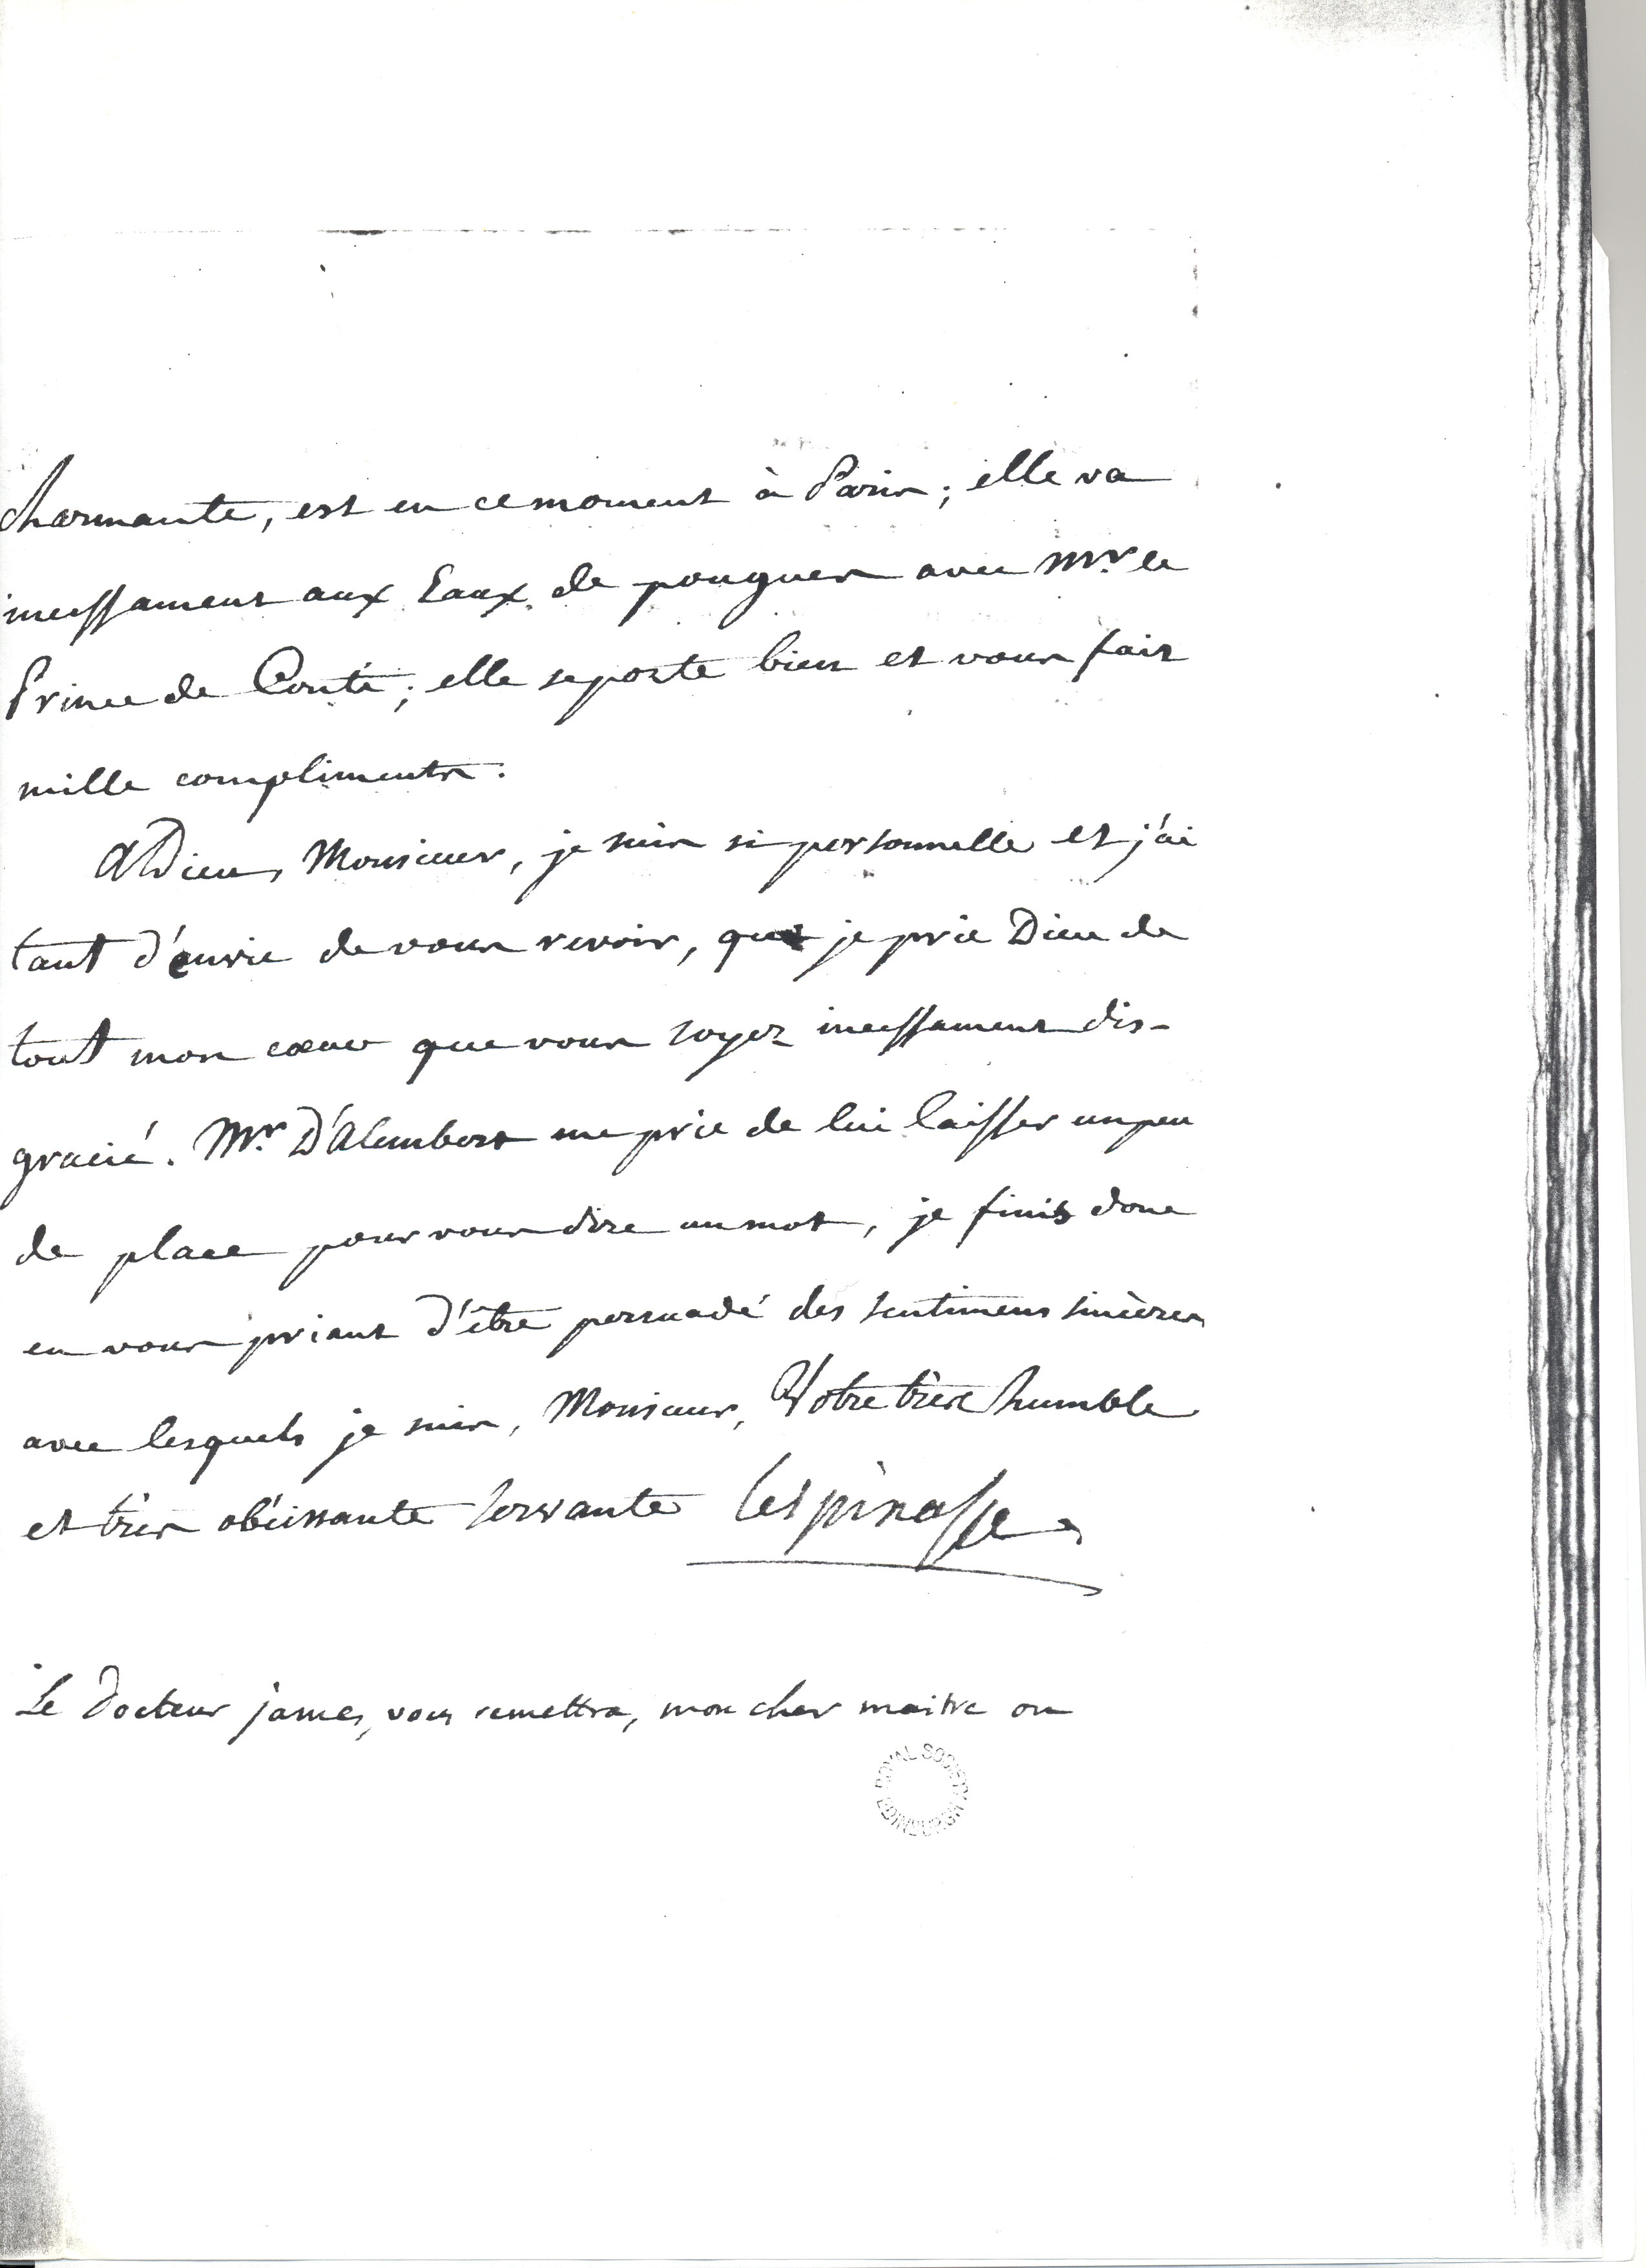 charmante, est en ce moment à Paris; elle va
incessament aux Eaux de pougues avec Mr. le
Prince de Conti; elle se porte bien et vous fait
mille compliments.
Adieu, Monsieur, je suis si personnelle et j'ai
tant d'envie de vous revoir, que je prie Dieu de
tout mon cœur que vous soyez incessament dis-
gracié. Mr. D'Alembert me prie de lui laisser un peu
de place pour vous dire un mot, je finis donc
en vous priant d'être persuadé des sentimens sincères
avec lesquels je suis, Monsieur, Votre très humble
et très obéissante servante Lespinasse
Le docteur james, vous remettra, mon cher maitre ou
ROYAL SOCIETY EDINBURGH